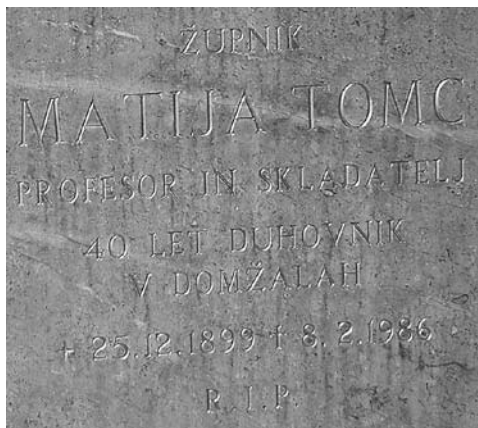 ŽUPNIK
MATIJA TOMC
PROFESOR IN SKLADATELJ
40 LET DUHOVNIK
V DOMŽALAH
+ 25.12.1899 † 8.2.1986
R.I.P.